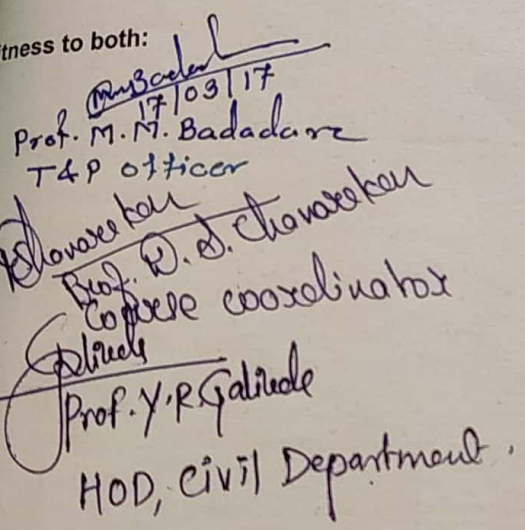 itness to both:
17/03/17
Prof. M. M. Badadare
T&P officer
Prof. D. S. Chavarekar
Course coordinator
Prof. Y. R. Galinde
HOD, Civil Department.